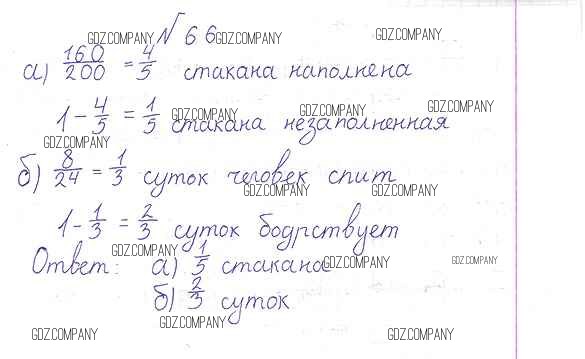 GDZ.COMPANY № 66 GDZ.COMPANY GDZ.COMPANY
а) 160/200 = 4/5 стакана наполнена
1 - 4/5 = 1/5 стакана незаполненная
GDZ.COMPANY GDZ.COMPANY GDZ.COMPANY
GDZ.COMPANY
б) 8/24 = 1/3 суток человек спит
GDZ.COMPANY GDZ.COMPANY
1 - 1/3 = 2/3 суток бодрствует
GDZ.COMPANY
Ответ: а) 1/5 стакана
GDZ.COMPANY GDZ.COMPANY
б) 2/3 суток
GDZ.COMPANY
GDZ.COMPANY GDZ.COMPANY